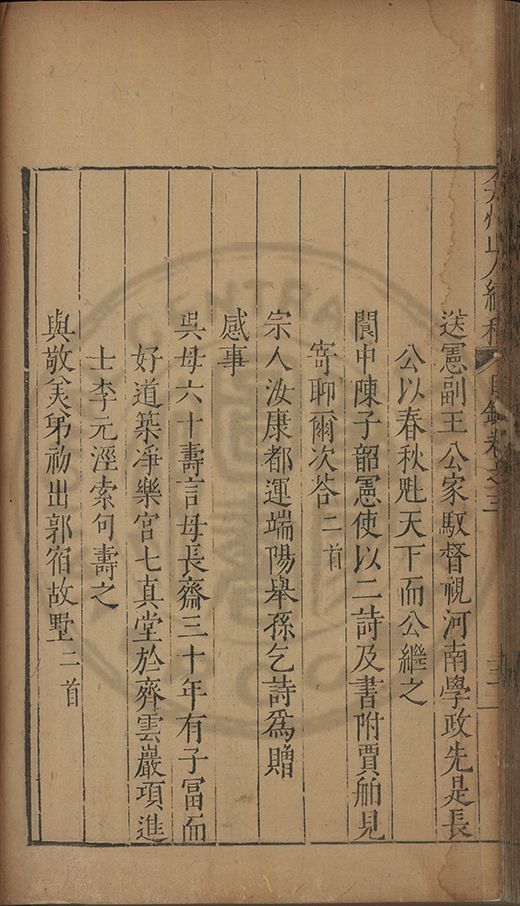 弇州山人續稿 目錄卷之三
送憲副王公家馭督視河南學政先是長
公以春秋魁天下而公繼之
閬中陳子韶憲使以二詩及書附賈舶見
寄聊爾次荅二首
宗人汝康都運端陽舉孫乞詩爲贈
感事
吳母六十壽言母長齋三十年有子富而
好道築淨樂宮七真堂於齊雲巖項進
士李元涇索句壽之
與敬美弟初出郭宿故墅二首